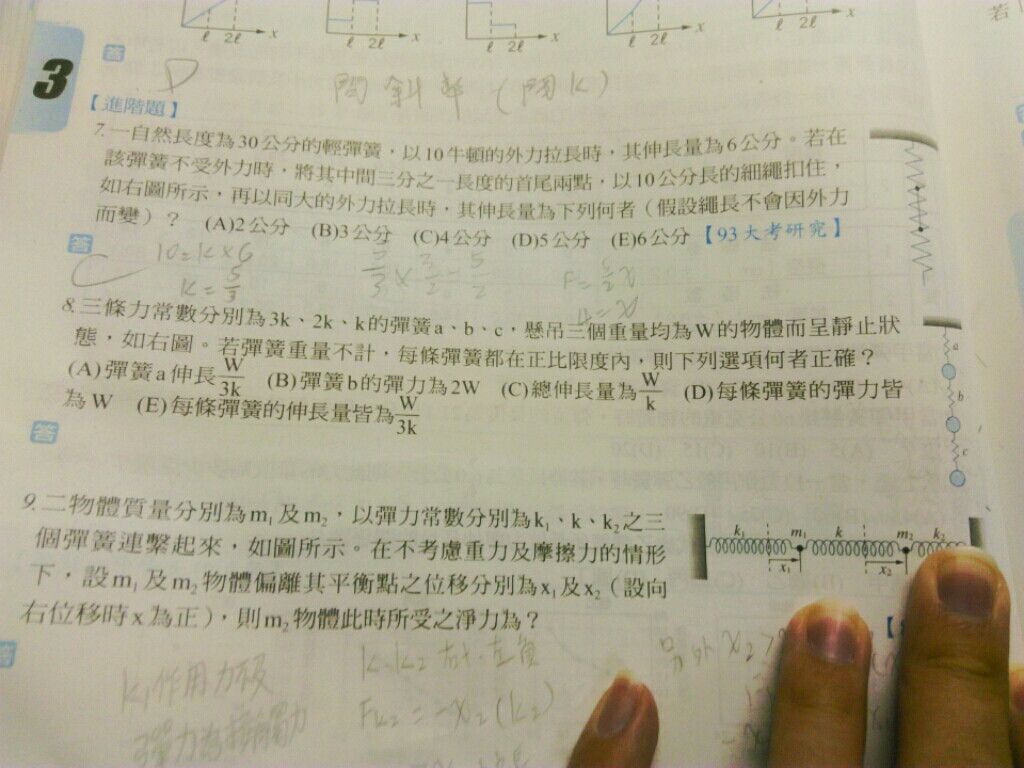 ℓ 2ℓ x ℓ 2ℓ x ℓ 2ℓ x ℓ 2ℓ x ℓ 2ℓ x
若
3
答
D 問斜率(問K)
【進階題】
7.一自然長度為30公分的輕彈簧，以10牛頓的外力拉長時，其伸長量為6公分。若在
該彈簧不受外力時，將其中間三分之一長度的首尾兩點，以10公分長的細繩扣住，
如右圖所示，再以同大的外力拉長時，其伸長量為下列何者（假設繩長不會因外力
而變）？ (A)2公分 (B)3公分 (C)4公分 (D)5公分 (E)6公分【93大考研究】
答
C 10=K×6 5/3×3/2=5/2 F=5/2x
K=5/3 4=x
8.三條力常數分別為3k、2k、k的彈簧a、b、c，懸吊三個重量均為W的物體而呈靜止狀
態，如右圖。若彈簧重量不計，每條彈簧都在正比限度內，則下列選項何者正確？
(A)彈簧a伸長W/3k (B)彈簧b的彈力為2W (C)總伸長量為W/k (D)每條彈簧的彈力皆
為W (E)每條彈簧的伸長量皆為W/3k
a
b
c
答
9.二物體質量分別為m₁及m₂，以彈力常數分別為k₁、k、k₂之三
個彈簧連繫起來，如圖所示。在不考慮重力及摩擦力的情形
下，設m₁及m₂物體偏離其平衡點之位移分別為x₁及x₂（設向
右位移時x為正），則m₂物體此時所受之淨力為？
k₁ m₁ k m₂ k₂
x₁ x₂
答
K₁作用力
K、K₂
另外 X₂>
F_K₂=-X₂(K₂)
彈力為接觸力